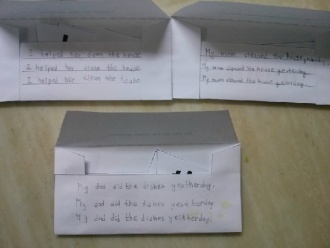 I helped her clean the house
I helped her clean the house
I helped her clean the house
My mum cleaned the house yesterday.
My mum cleaned the house yesterday.
My mum cleaned the house yesterday.
My dad did the dishes yesterday.
My dad did the dishes yesterday.
My dad did the dishes yesterday.